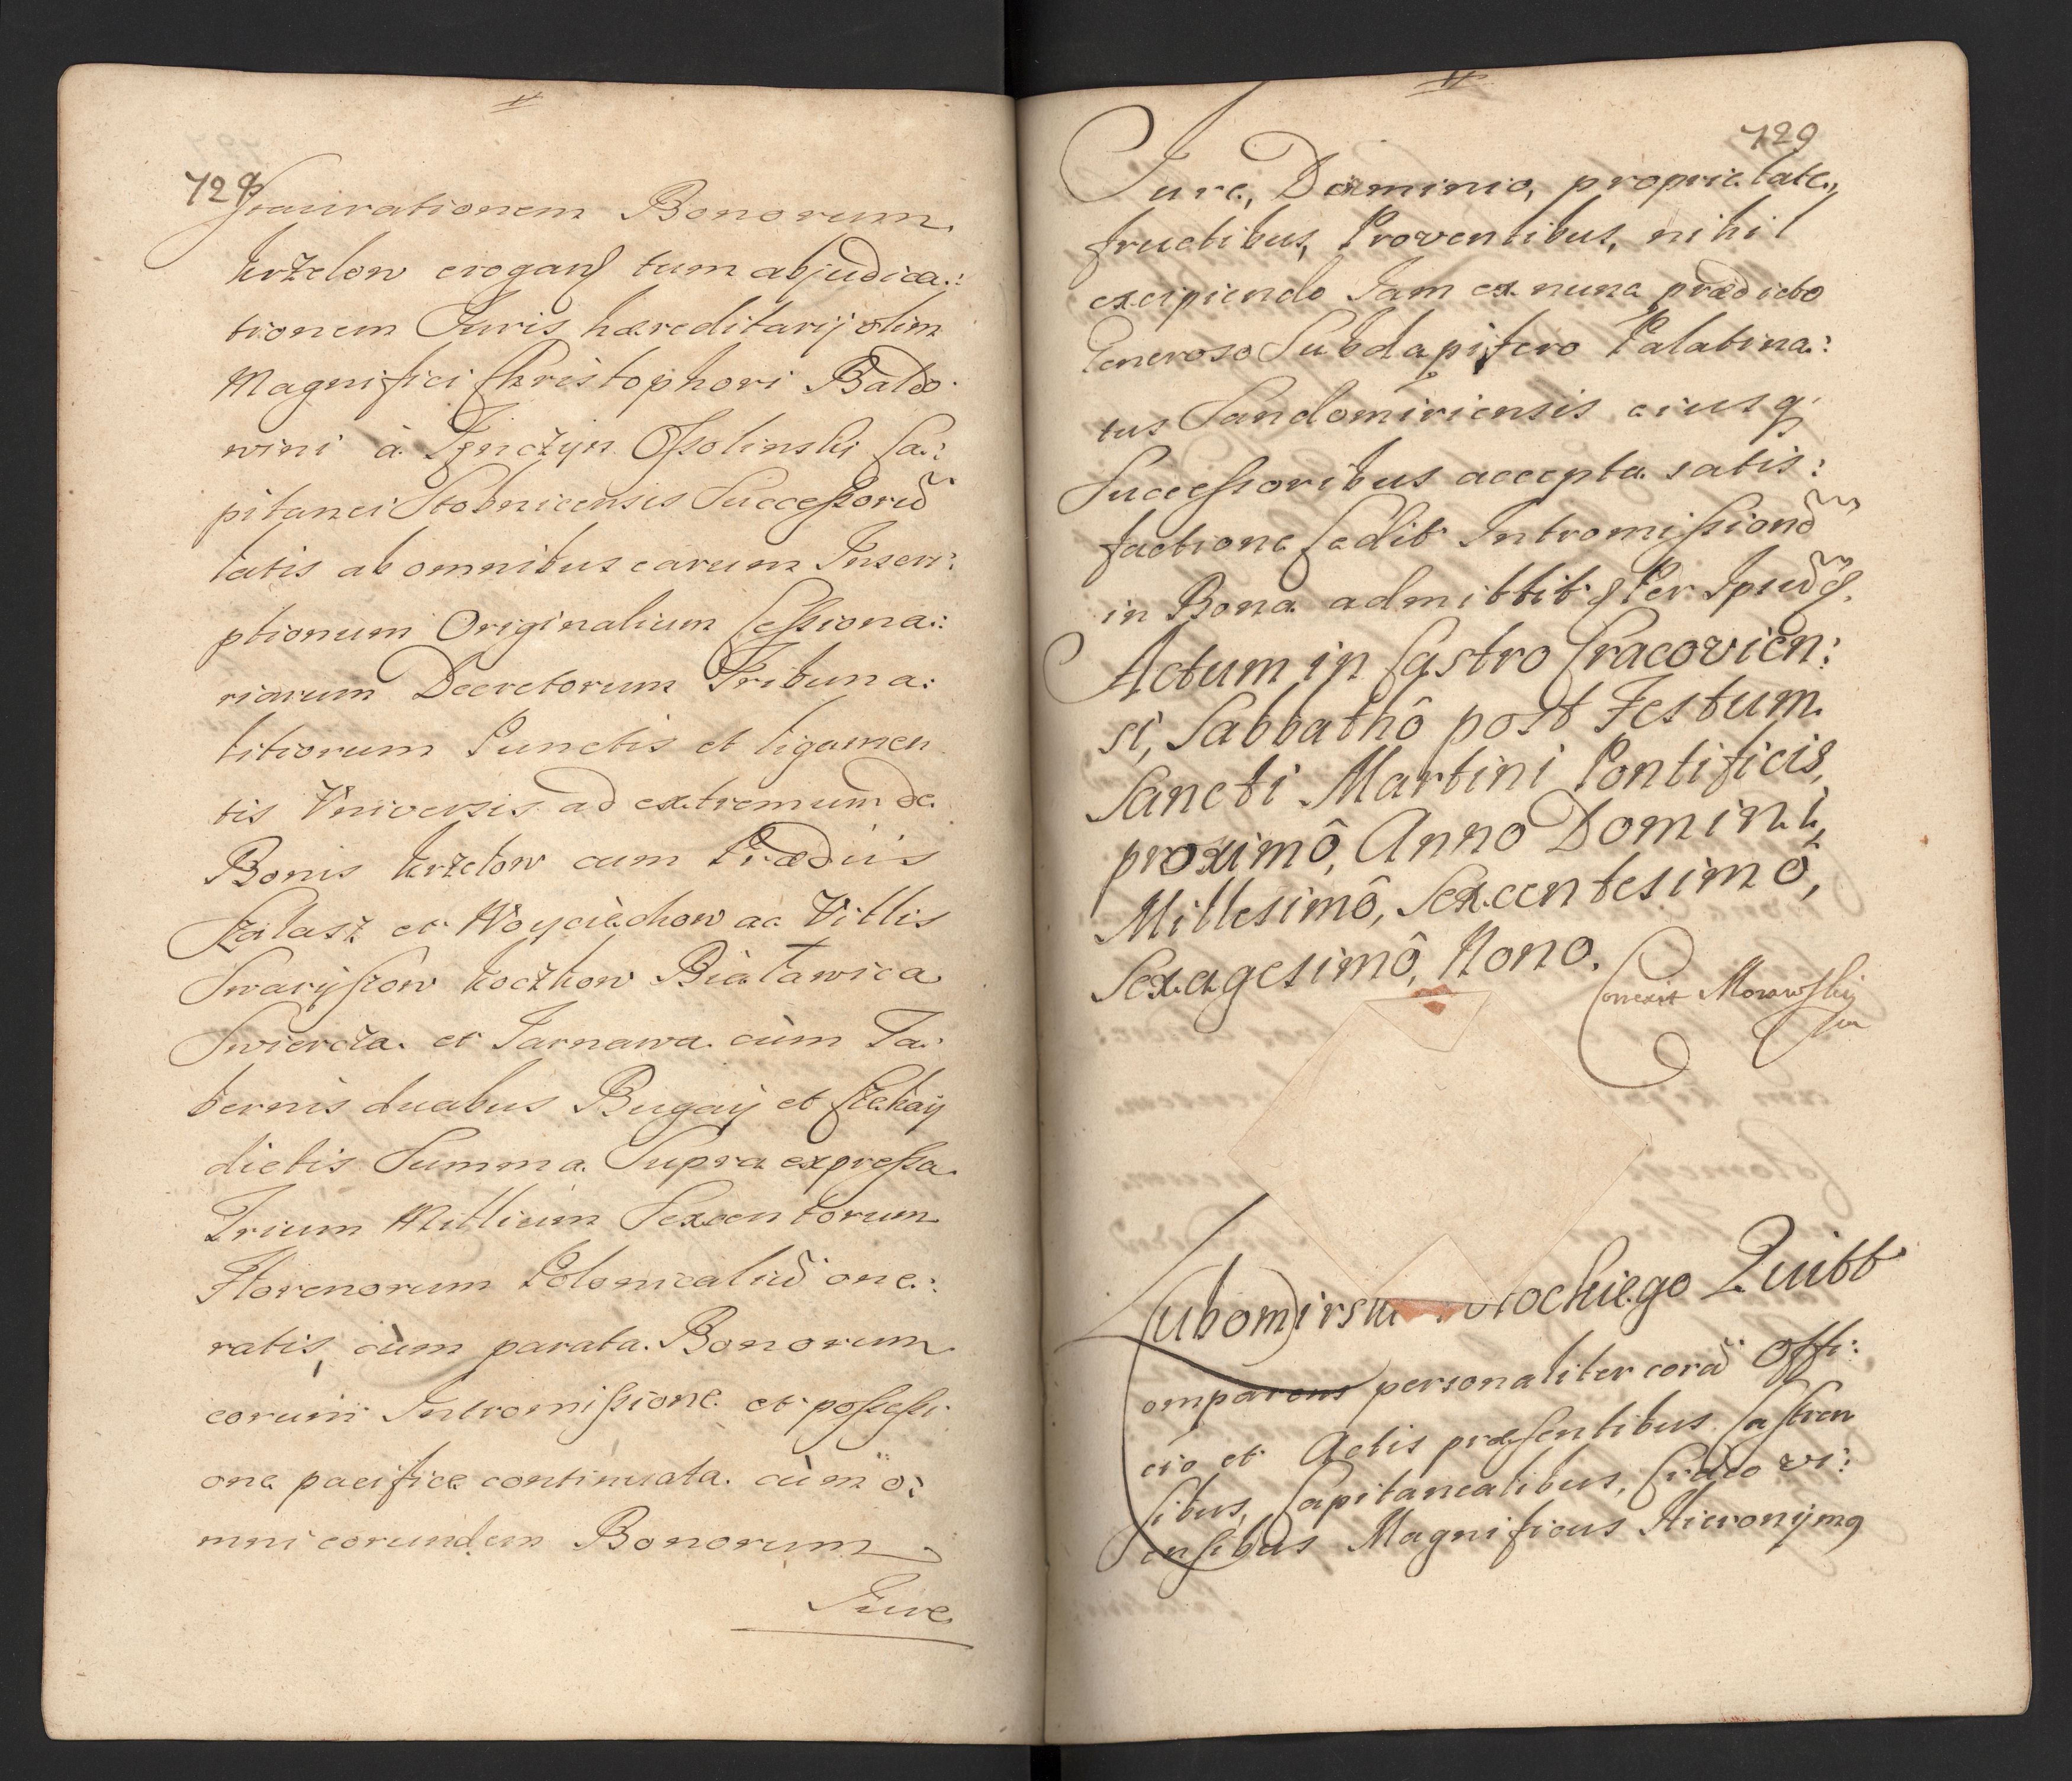 728
staurationem Bonorum
Krzelow erogans tum abjudica:
tionem Juris hæreditarij olim
Magnifici Christophori Baldo
wini à Tęnczyn Ossolinski Ca:
pitanei Stobnicensis Successorū
latis ab omnibus earum Inscri:
ptionum Originalium Cessiona:
riarum Decretorum Tribuna:
litiorum Punctis et ligamen
tis Vniversis ad extremum de
Bonis Krzelow cum Prædiis
Szalasz et Woyciechow ac Villis
Swaryszow Koczkow Białawica
Swiercza et Jarnawa cùm Ta:
bernis duabus Bugaÿ et Czekaÿ
dictis Summa Supra expressa
Trium Millium Sexcentorum
Florenorum Polonicaliū one:
ratis, cùm parata Bonorum
eorum Intromissione et possessi
one pacifice continuata cùm o:
mni eorundem Bonorum
Jure
729
Jure, Dominio, proprietate,
fructibus, Proventibus, nihil
excipiendo Jam ex nunc prædicto
Generoso Subdapifero Palatina:
tus Sandomiriensis eiusq
Successoribus accepta satis:
factione Cedit Intromissionē
in Bona admittit
Actum in Castro Cracovien:
si, Sabbathô post Festum
Sancti Martini Pontificis,
proximô, Anno Domini,
Millesimô, Sexcentesimô,
Sexagesimô, Nono.
Conexit Morawskij
Lubomirski ochiego Quitt
omparens personaliter corā Offi:
cio et Actis præsentibus Castren
sibus, Capitanealibus, Craco vi:
ensibus Magnificus Hieronijmq